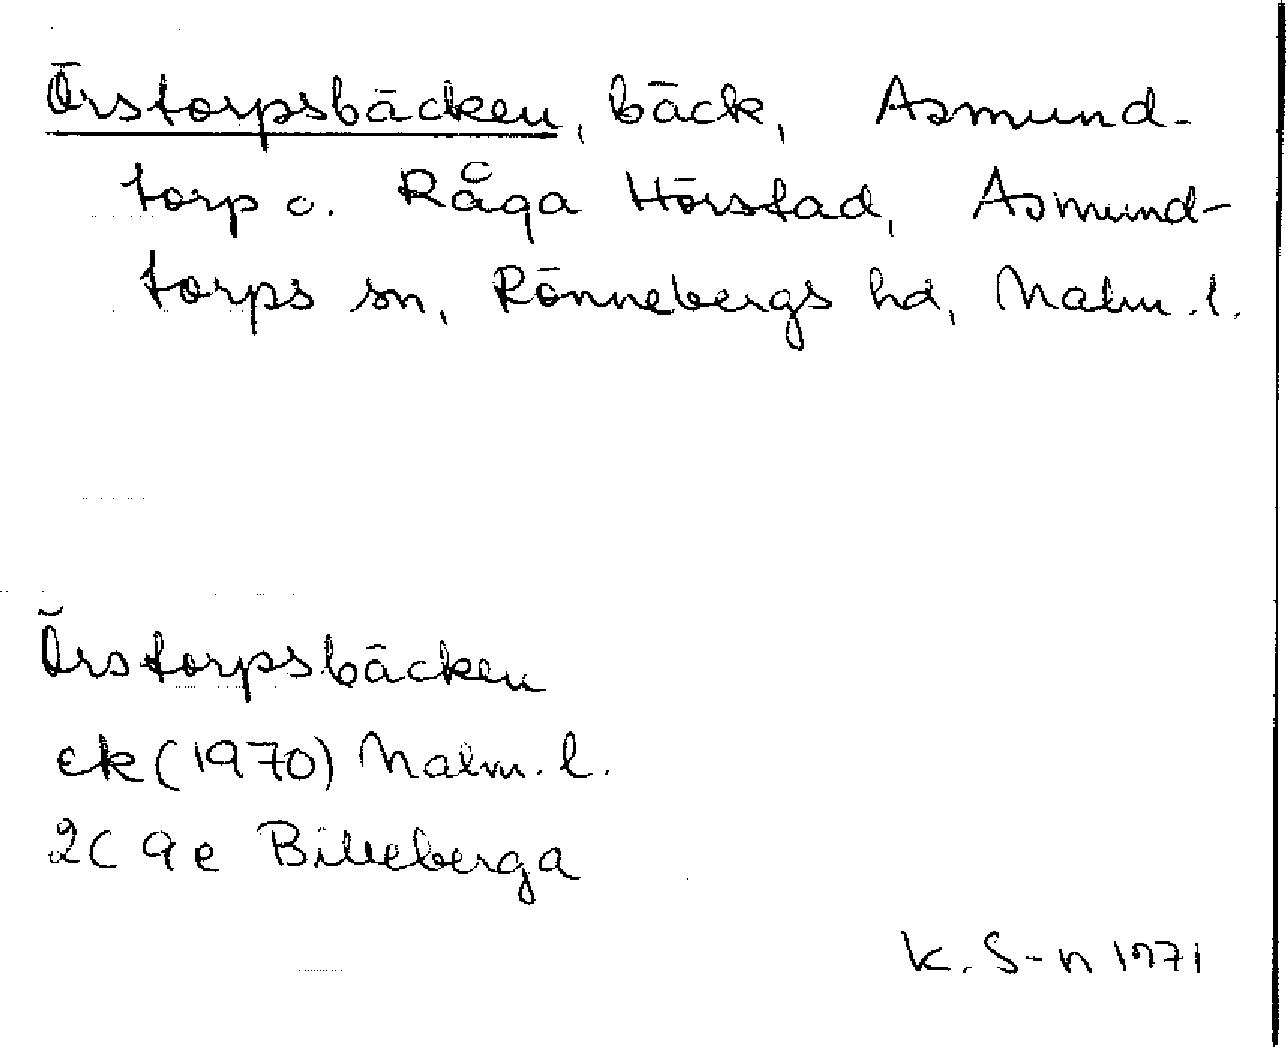 Örstorpsbäcken, bäck, Asmund-
torp o. Råga Hörstad, Asmund-
torps sn, Rönnebergs hd, Malm. l.
Örstorpsbäcken
ek (1970) Malm. l.
2C 9e Billeberga
K. S-n 1971